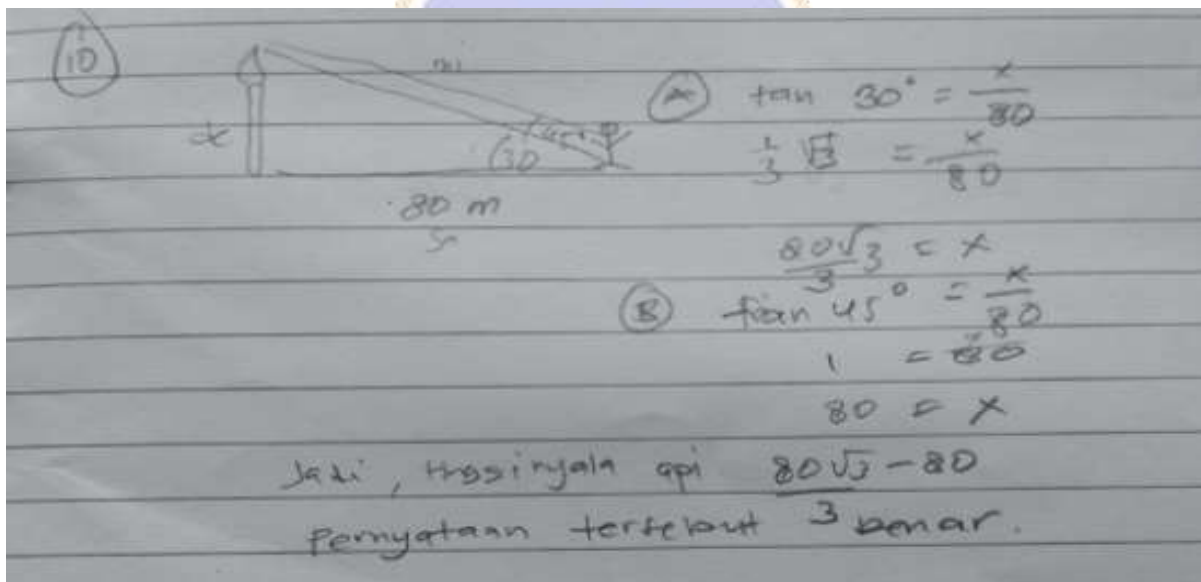 10
x
30
80 m
A tan 30° = x/80
1/3 √3 = x/80
80√3/3 = x
B tan 45° = x/80
1 = 80
80 = x
Jadi, api 80√3 - 80
3
Pernyataan tersebut benar.